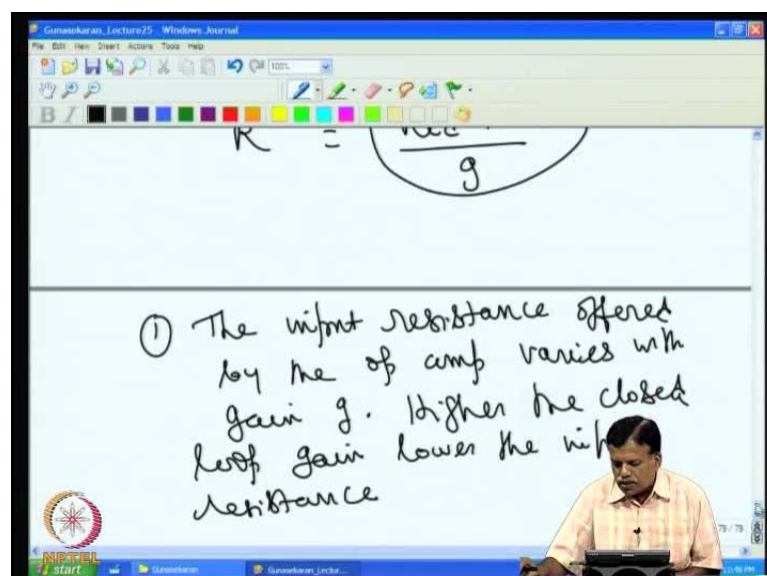 Gunasekaran_Lecture25 - Windows Journal
File Edit View Insert Actions Tools Help
100%
B I
R =
g
① The input resistance offered
by the op amp varies with
gain g. Higher the closed
loop gain lower the
resistance
79 / 79
NPTEL
start Gunasekaran Gunasekaran_Lectur...